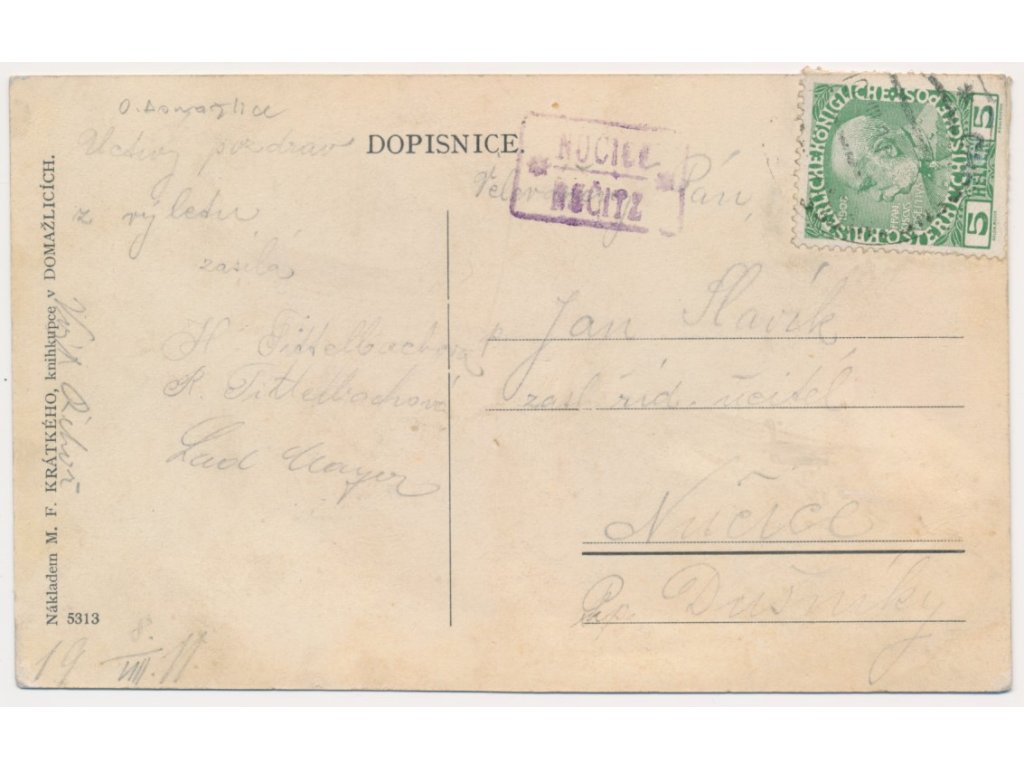 O. Domažlice
Uctivý pozdrav
z výletu
zasílá
K. Tittelbachova
R. Tittelbachová
Lad Mayer
19 8./VIII. 11
Nákladem M. F. KRÁTKÉHO, knihkupce v DOMAŽLICÍCH.
5313
DOPISNICE.
NUČICE
NUČITZ
Pán,
Jan Slavík
zasl. říd. učitel
Nučice
p. Dušníky
KAISERLICHE KÖNIGLICHE ÖSTERREICHISCHE POST
5 HELLER 5